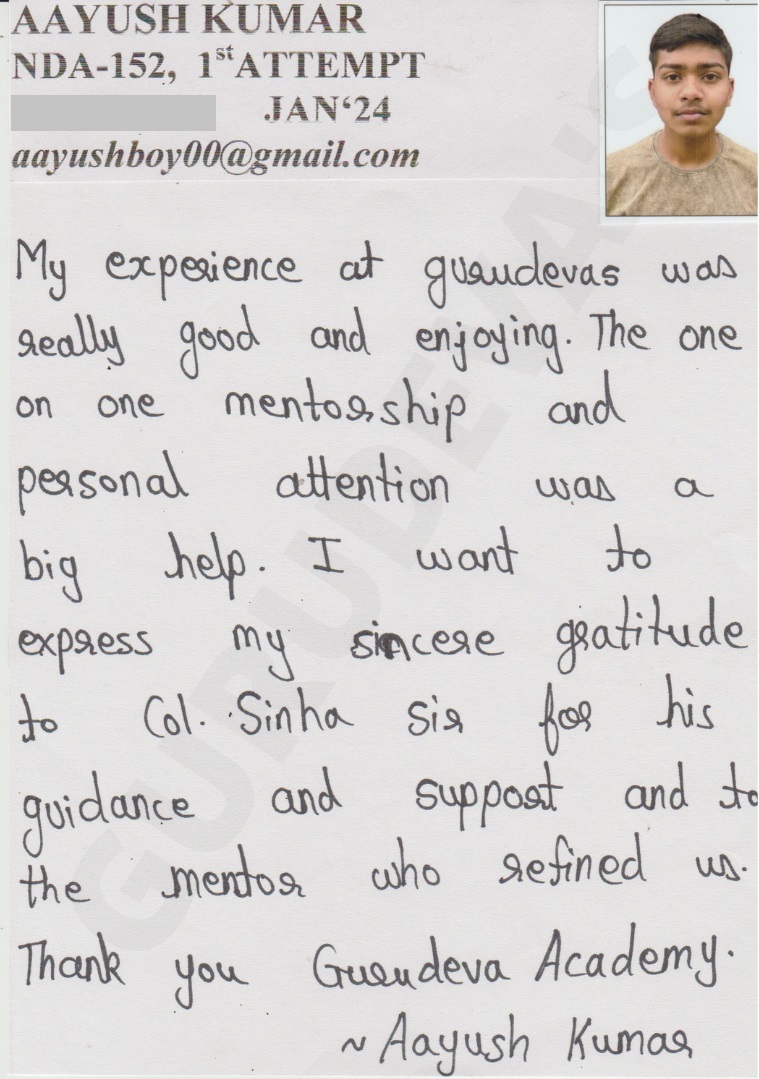 AAYUSH KUMAR
NDA-152, 1st ATTEMPT
JAN‘24
aayushboy00@gmail.com
My experience at gurudevas was
really good and enjoying. The one
on one mentorship and
personal attention was a
big help. I want to
express my sincere gratitude
to Col. Sinha sir for his
guidance and support and to
the mentor who refined us.
Thank you Gurudeva Academy.
~ Aayush Kumar
GURUDEVA'S